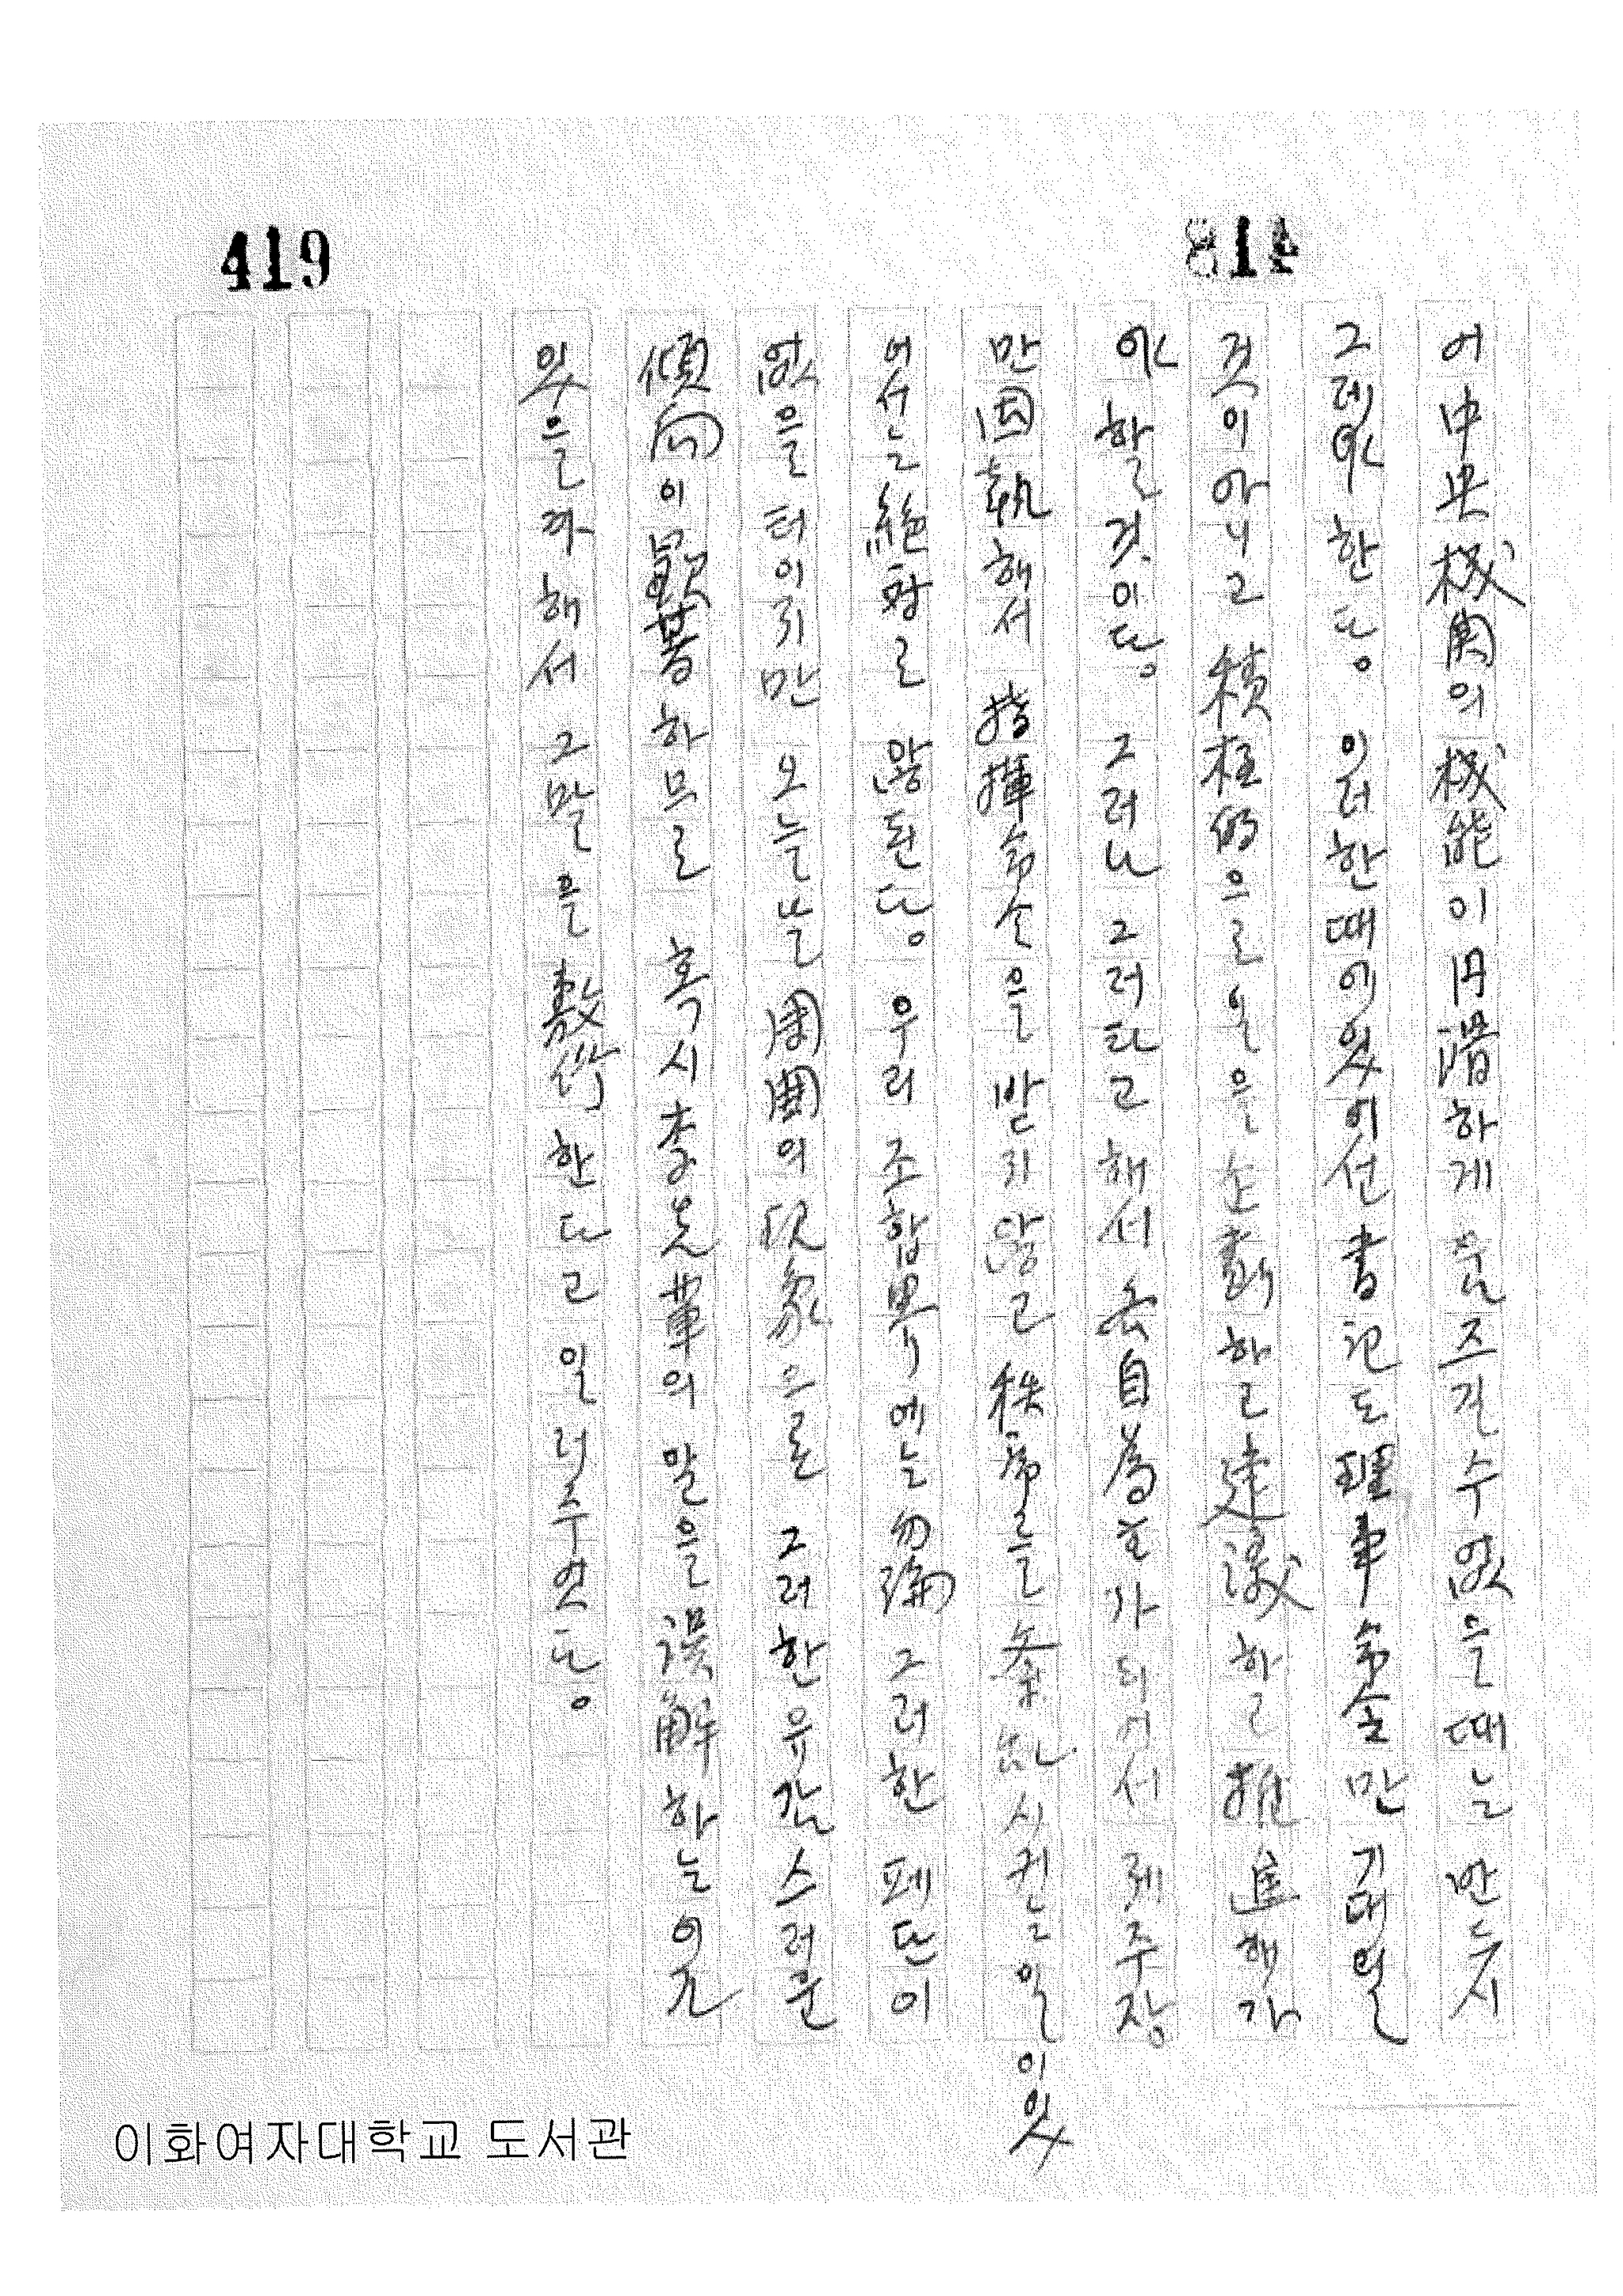 418
419
어 中央機関의 機能이 円滑하게 움즈길 수 없을 때는 반듯시
그레야 한다。 이러한 때에 있어선 書記도 理事命令만 기대일
것이 아니고 積極的으로 일을 企劃하고 建議하고 推進해가
야 할 것이다。 그러나 그러타고 해서 各自爲主가 되어서 제주장
만 固執해서 指揮命令을 받지 않고 秩序를 紊乱시키는 일이 있
어서는 絶対로 않된다。 우리 조합뿐에는 勿論 그러한 페단이
없을 터이지만 오늘날 周圍의 現象으로 그러한 유감스러운
傾向이 顕著하므로 혹시 李先輩의 말을 誤解하는 이가
있을까 해서 그 말을 敷衍한다고 일러주었다。
이화여자대학교 도서관